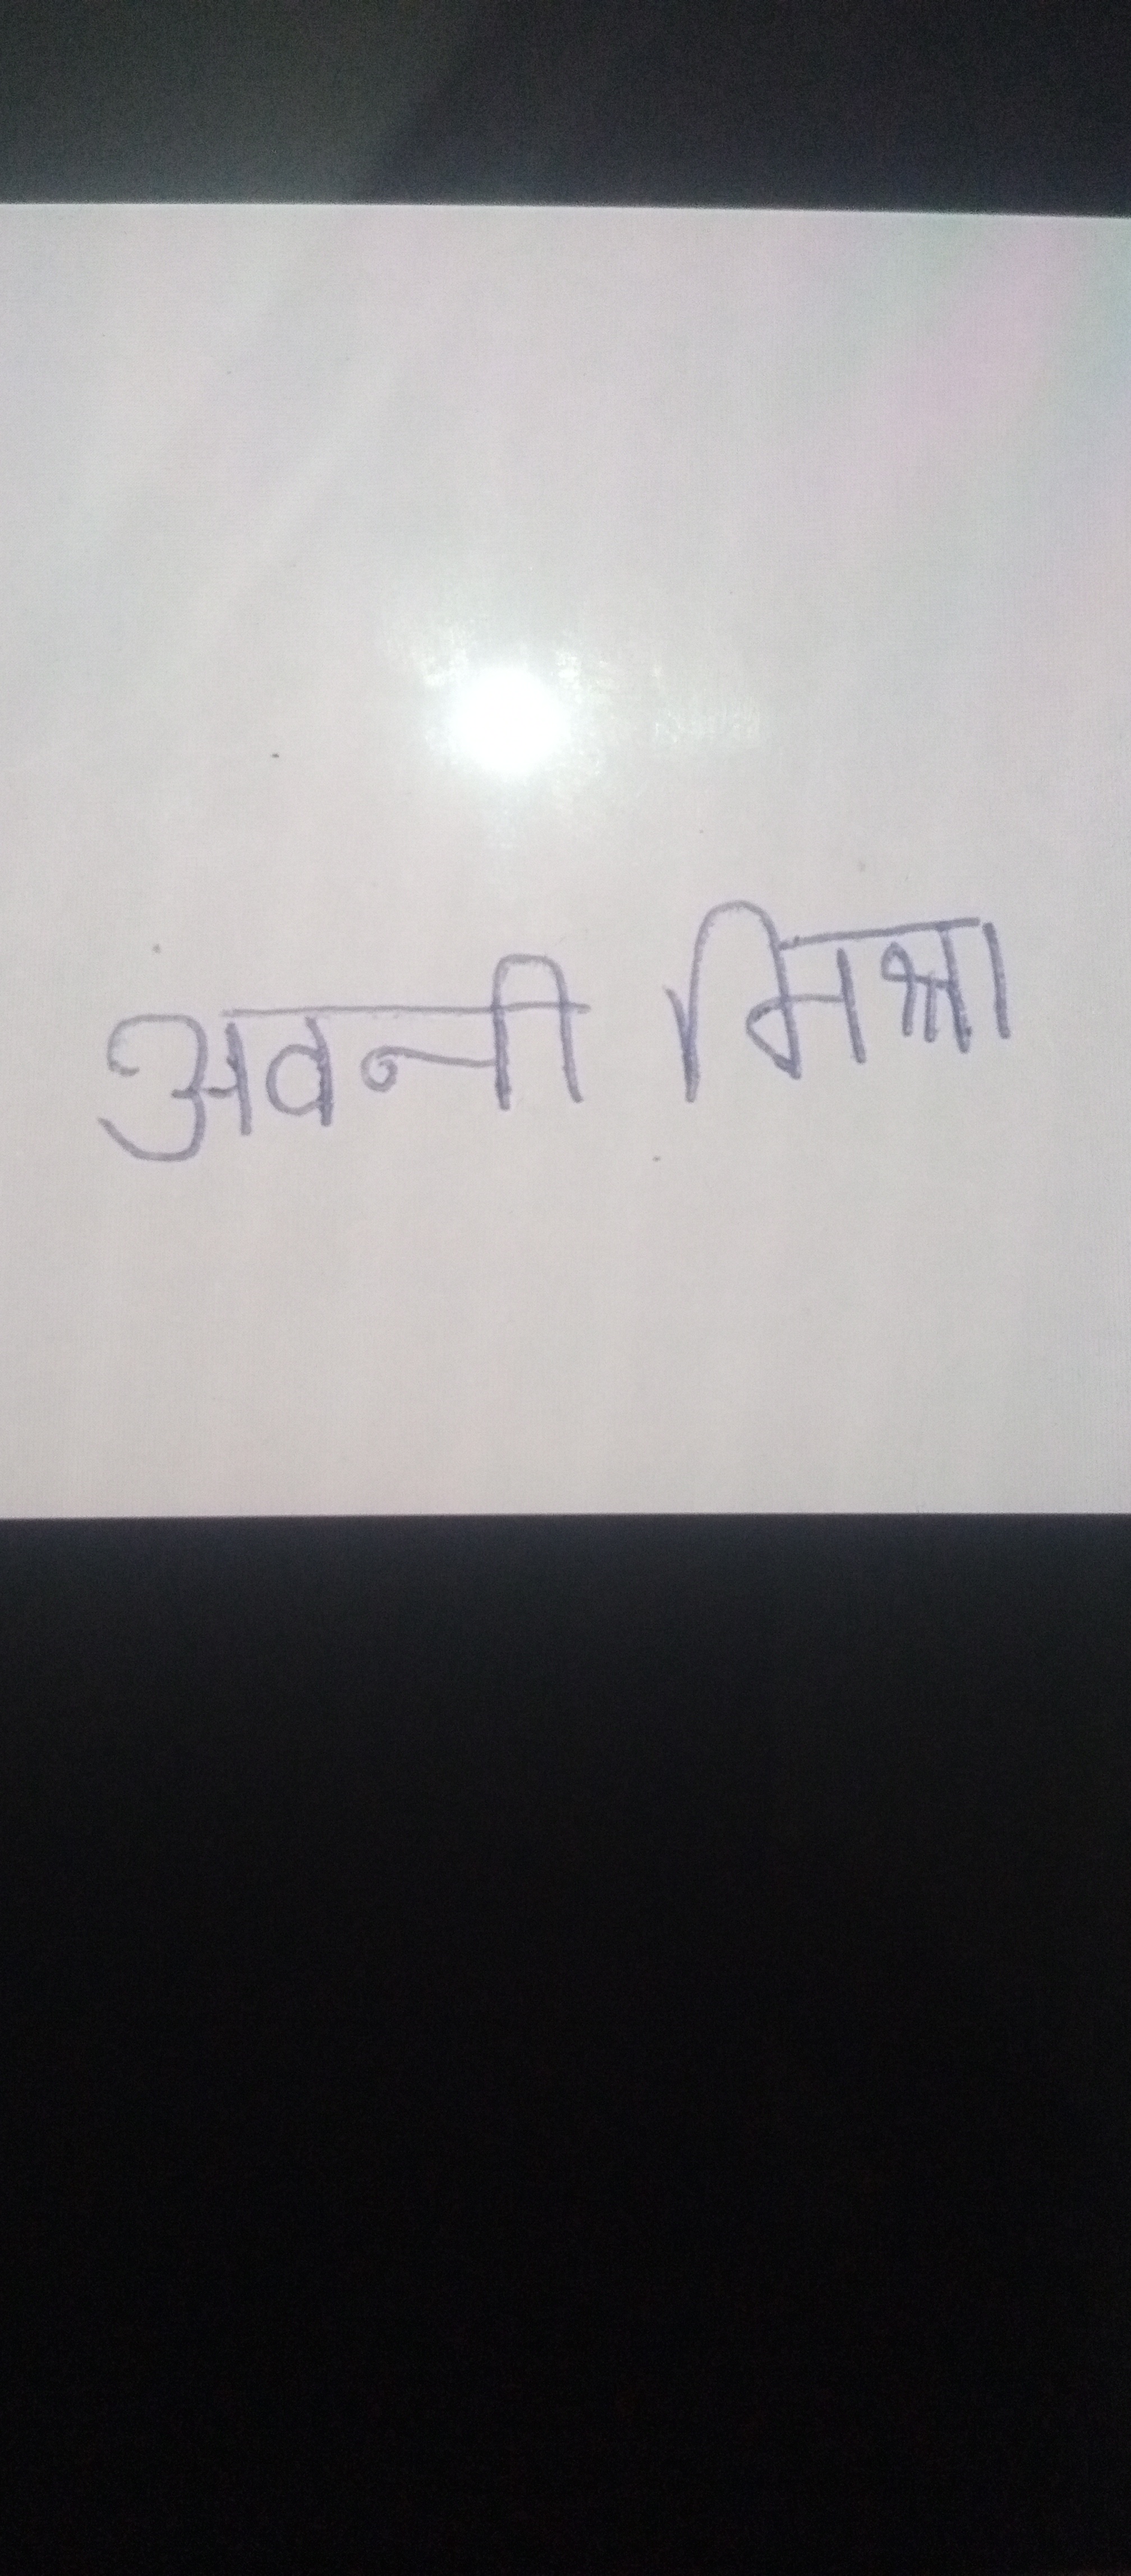 अवनी मिश्रा